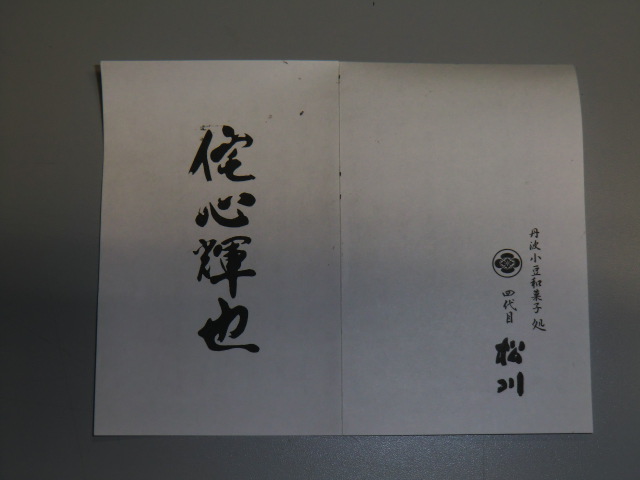 丹波小豆和菓子処
四代目
松川
侘心輝也